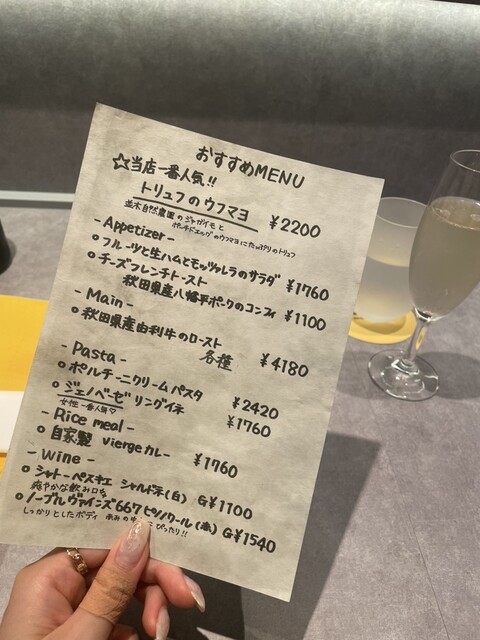 おすすめMENU
☆当店一番人気!!
トリュフのウフマヨ ¥2200
並木自然農園のジャガイモと
ポーチドエッグのウフマヨにたっぷりのトリュフ
- Appetizer -
○フルーツと生ハムとモッツァレラのサラダ ¥1760
○チーズフレンチトースト
秋田県産八幡平ポークのコンフィ ¥1100
- Main -
○秋田県産由利牛のロースト
各種 ¥4180
- Pasta -
○ポルチーニクリームパスタ ¥2420
○ジェノベーゼリングイネ ¥1760
女性一番人気♡
- Rice meal -
○自家製 viergeカレー ¥1760
- wine -
○シャトーペスキエ シャルドネ(白) G¥1100
爽やかな飲み口
○ノーブルヴァインズ667ピノノワール(赤) G¥1540
しっかりとしたボディ ぴったり!!